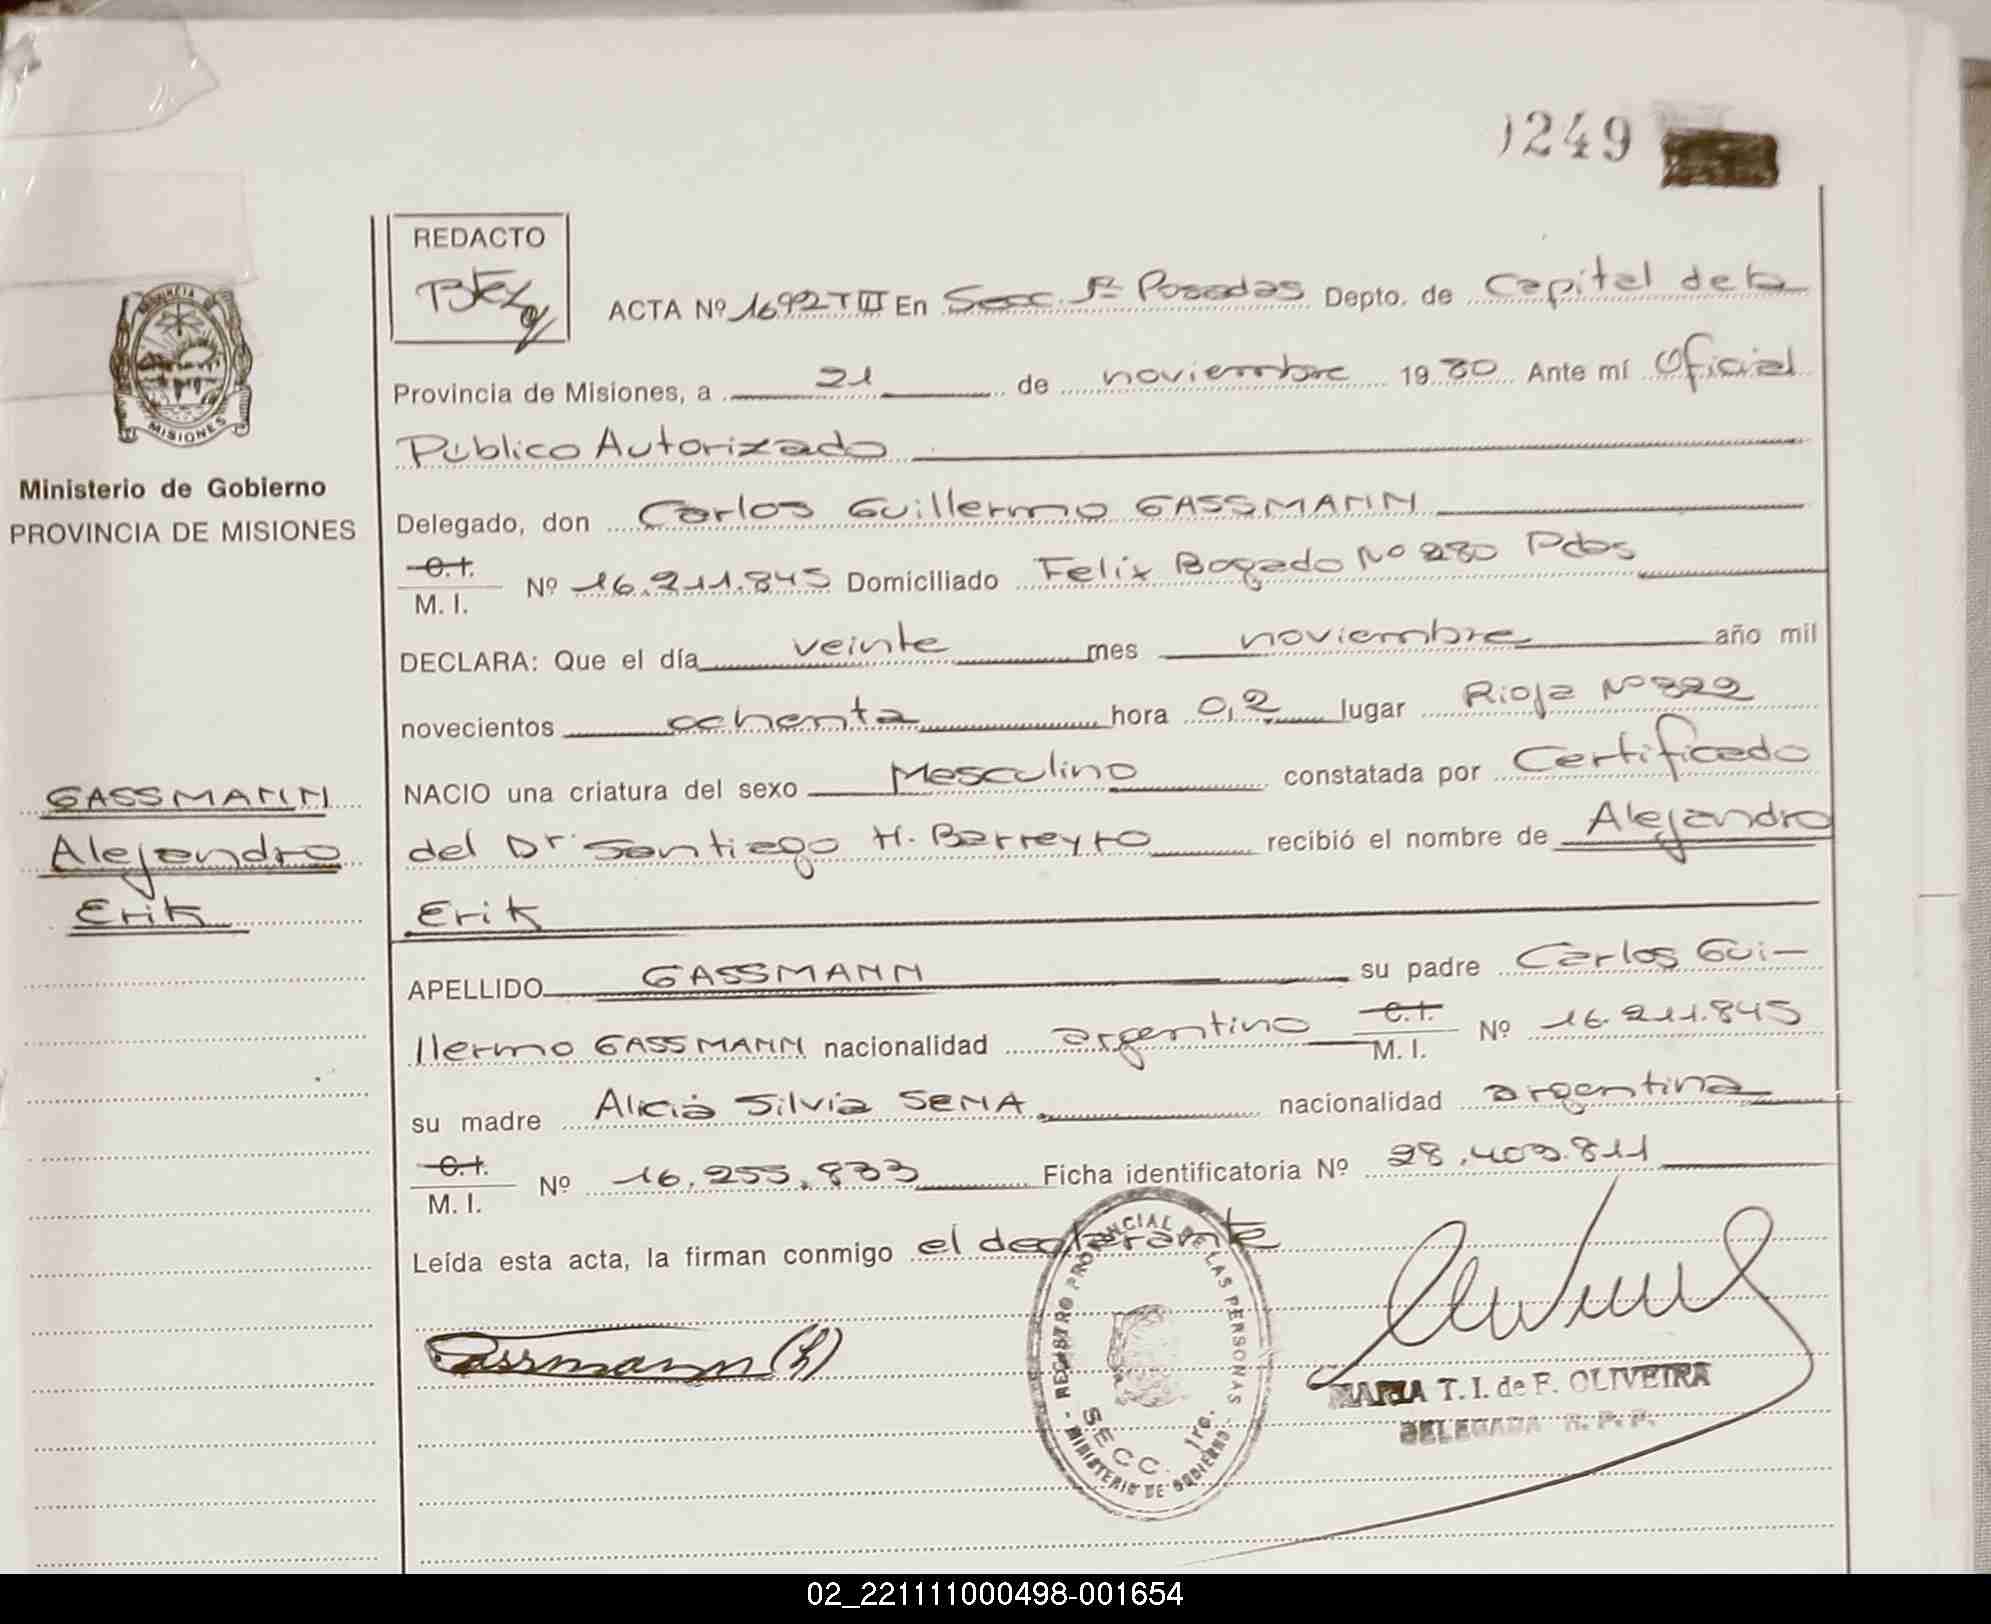 249
REDACTO
ACTA Nº 1692 T III En Secc. 1ª Posadas Depto. de Capital de la
Provincia de Misiones, a 21 de noviembre 1980 Ante mí Oficial
Público Autorizado
Delegado, don Carlos Guillermo GASSMANN
C.I.
M. I. Nº 16.211.845 Domiciliado Felix Bogado Nº 280 Pdas
DECLARA: Que el día veinte mes noviembre año mil
novecientos ochenta hora 0,2 lugar Rioja Nº 822
NACIO una criatura del sexo Masculino constatada por Certificado
del Dr Santiago H. Barreyro recibió el nombre de Alejandro
Erik
APELLIDO GASSMANN su padre Carlos Gui-
llermo GASSMANN nacionalidad argentino C.I. M. I. Nº 16.211.845
su madre Alicia Silvia SENA nacionalidad argentina
C.I.
M. I. Nº 16.255.833 Ficha identificatoria Nº 28.409.811
Leída esta acta, la firman conmigo el declarante
Gassmann (h)
REGISTRO PROVINCIAL DE LAS PERSONAS
SECC. 1ra.
MINISTERIO DE GOBIERNO
MARIA T. I. de F. OLIVEIRA
DELEGADA R. P. P.
PROVINCIA
MISIONES
Ministerio de Gobierno
PROVINCIA DE MISIONES
GASSMANN
Alejandro
Erik
02_221111000498-001654